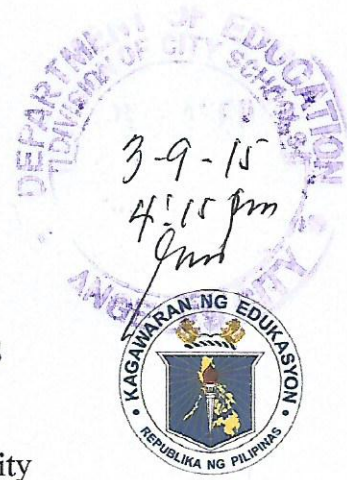 DEPARTMENT OF EDUCATION
DIVISION OF CITY SCHOOLS
3-9-15
4:15 pm
ANGELES CITY
KAGAWARAN NG EDUKASYON
REPUBLIKA NG PILIPINAS
ity